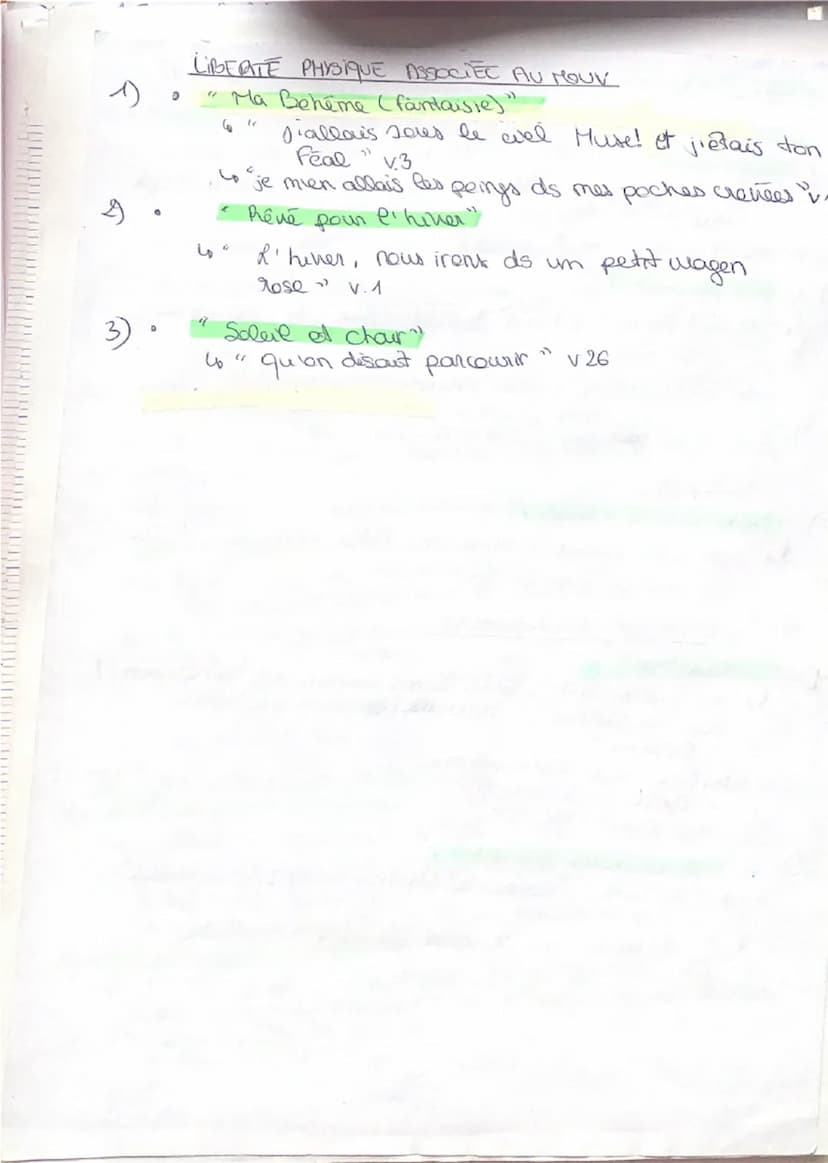 LIBERTÉ PHYSIQUE ASSOCIÉE AU MOUV
1) • " Ma Bohême (fantaisie)"
↳ " J'allais sous le ciel Muse! et j'étais ton
Féal " v.3
↳ "je m'en allais les poings ds mes poches crevées " v.
2) • " Rêvé pour l'hiver"
↳ " L'hiver, nous irons ds un petit wagon
rose " v.1
3) • " Soleil et chair"
↳ " qu'on disait parcourir " v 26